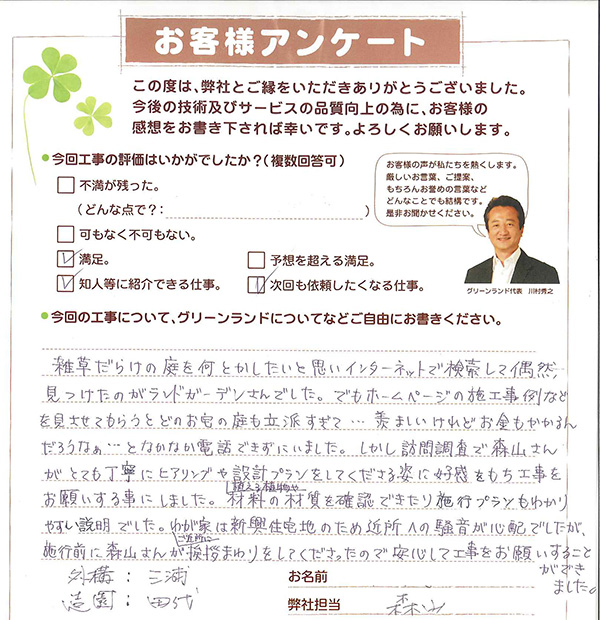 お客様アンケート
この度は、弊社とご縁をいただきありがとうございました。
今後の技術及びサービスの品質向上の為に、お客様の
感想をお書き下されば幸いです。よろしくお願いします。
●今回工事の評価はいかがでしたか?(複数回答可)
不満が残った。
(どんな点で?: )
可もなく不可もない。
満足。
予想を超える満足。
知人等に紹介できる仕事。
次回も依頼したくなる仕事。
お客様の声が私たちを熱くします。
厳しいお言葉、ご提案、
もちろんお誉めの言葉など
どんなことでも結構です。
是非お聞かせください。
グリーンランド代表 川村秀之
●今回の工事について、グリーンランドについてなどご自由にお書きください。
雑草だらけの庭を何とかしたいと思いインターネットで検索して偶然、
見つけたのがランドガーデンさんでした。でもホームページの施工事例など
を見させてもらうとどのお宅の庭も立派すぎて… 羨ましいけれどお金もかかるん
だろうなぁ…となかなか電話できずにいました。しかし訪問調査で森山さん
がとても丁寧にヒアリングや設計プランをしてくださる姿に好感をもち工事を
お願いする事にしました。植える植物や材料の材質を確認できたり施行プランもわかり
やすい説明でした。わが家は新興住宅地のため近所への騒音が心配でしたが、
施行前に森山さんがご近所に挨拶まわりをしてくださったので安心して工事をお願いすること
ができ
ました。
外構:三浦
造園:田代
お名前
弊社担当 森山